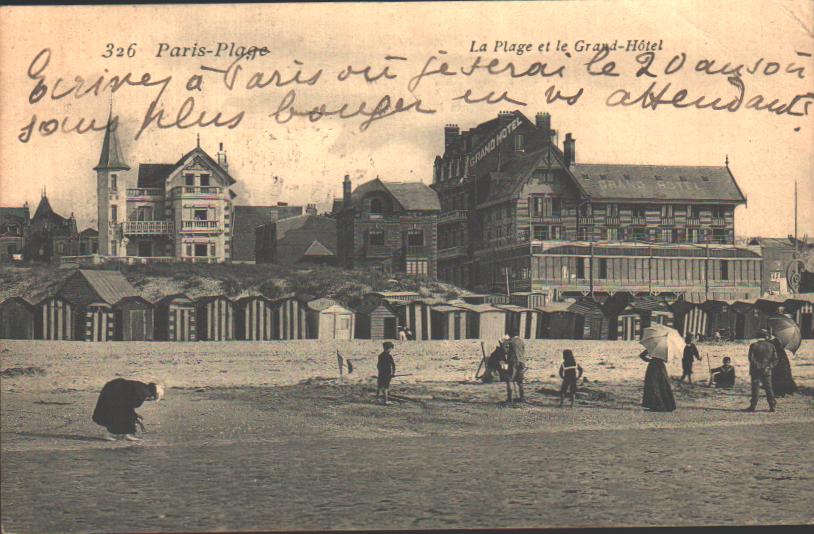 326 Paris-Plage
La Plage et le Grand-Hôtel
Ecrivez à Paris où je serai le 20 au soir
sans plus bouger en vs attendant.
GRAND HOTEL
GRAND HOTEL